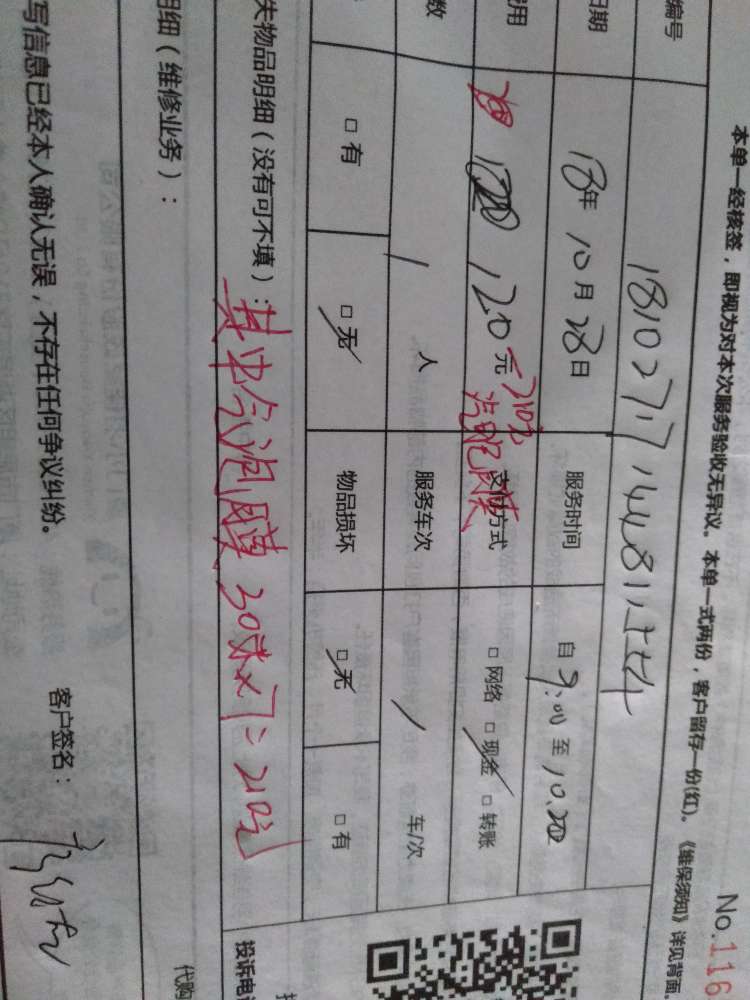 本单一经核签，即视为对本次服务验收无异议。本单一式两份，客户留存一份(红)。《维保须知》详见背面
No.116
编号
日期 18年10月28日 服务时间 自9:00至10:20
用 120元 210元 支付方式 □网络 □现金 □转账
气泡膜
数 1 人 服务车次 / 车/次
□有 □无 物品损坏 □无 □有
失物品明细（没有可不填）：
其中气泡膜30米×7=210元
明细（维修业务）：
写信息已经本人确认无误，不存在任何争议纠纷。
客户签名：
投诉电
代购